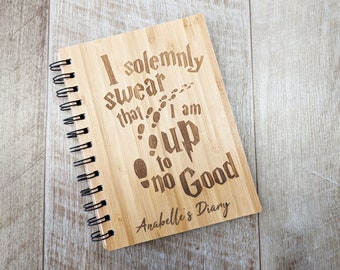 I solemnly
swear
that I am
up
to
no Good
Anabelle's Diary